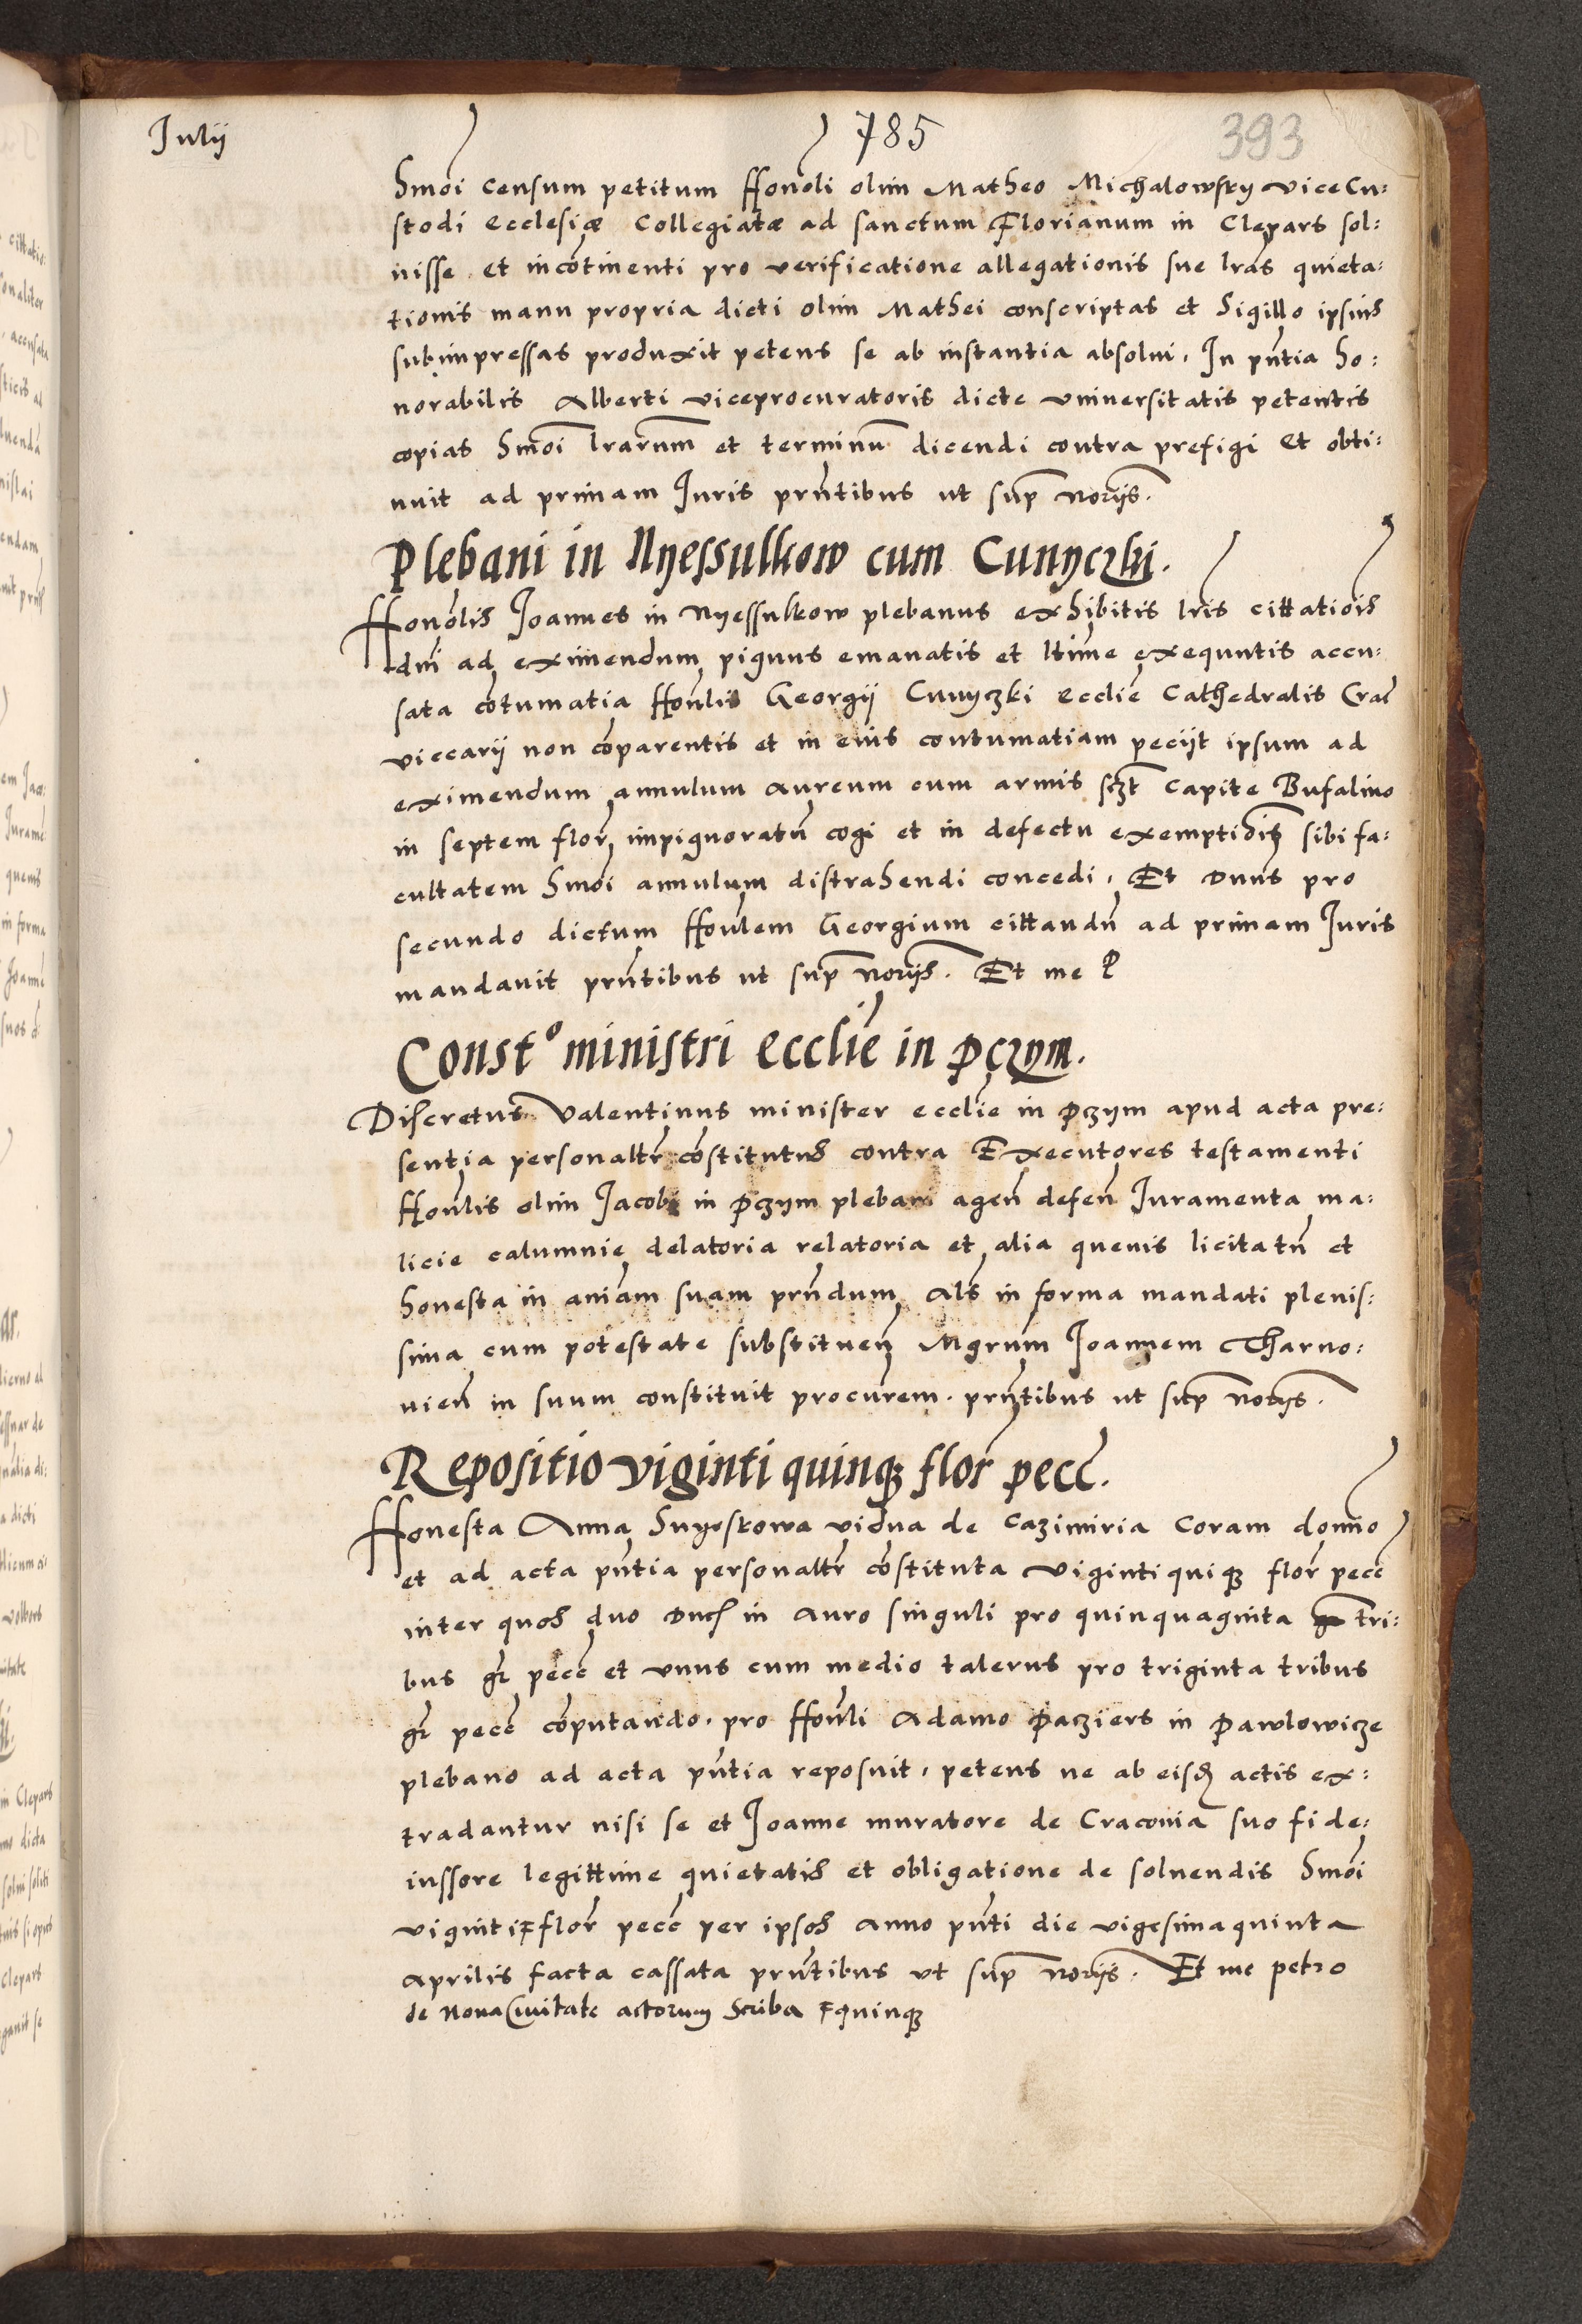 Julij
785
393
hmoi censum petitum Honoli olim Matheo Michalowsky vice Cu:
stodi ecclesiæ Collegiatæ ad sanctum Florianum in Clepars sol:
uisse et incotinenti pro verificatione allegationis sue lras quieta:
tionis manu propria dicti olim Mathei conscriptas et Sigillo ipsius
subimpressas produxit petens se ab instantia absolui. In pntia ho:
norabilis Alberti viceprocuratoris dicte vniuersitatis petentis
copias hmoi lrarum et terminu dicendi contra prefigi Et obti:
nuit ad primam Juris prntibus ut sup noriis.
Plebani in Nyessulkow cum Cunyczki.
Honolis Joannes in Nyessulkow plebanus exhibitis lris cittatiois
dni ad eximendum pignus emanatis et ltime exequutis accu:
sata cotumatia Honlis Georgij Cunyczki Ecclie Cathedralis Crac
viccarij non coparentis et in eius contumatiam peciit ipsum ad
eximendum annulum aureum cum armis sczt Capite Bufalino
in septem flor impignoratu cogi et in defectu exemptiois sibi fa:
cultatem hmoi annulum distrahendi concedi. Et Dnus pro
secundo dictum Honlem Georgium cittandu ad primam Juris
mandauit prntibus ut sup noriis. Et me P
Const° ministri Ecclie in Pczym.
Discretus Valentinus minister ecclie in Pczym apud acta pre:
sentia personaltr costitutus contra Executores testamenti
Honlis olim Jacobi in Pczym plebani agen defen Juramenta ma:
licie calumnie delatoria relatoria et alia queuis licita tn et
honesta in aniam suam prndum als in forma mandati plenis:
sima cum potestate substituen Mgrum Joannem Tharno:
uien in suum constituit procurem. prntibus ut sup noriis.
Repositio viginti quinq flor pecc.
Honesta Anna vidua de Cazimiria Coram domino
et ad acta pntia personaltr costituta Viginti quiq flor pecc
inter quos duo Duc in auro singuli pro quinquaginta tri:
bus gr pecc et vnus cum medio talerus pro triginta tribus
gr pecc coputando. pro Honli Adamo Pacziers in Pawlowicze
plebano ad acta pntia reposuit. petens ne ab eisd actis ex:
tradantur nisi se et Joanne muratore de Craconia suo fide:
iussore legittime quietatis et obligatione de soluendis hmoi
viginti ꝼ flor pecc per ipsos Anno pnti die vigesima quinta
aprilis facta cassata prntibus vt sup noriis. Et me petro
de Noua Ciuitate actorum Scriba ꝼ quinq